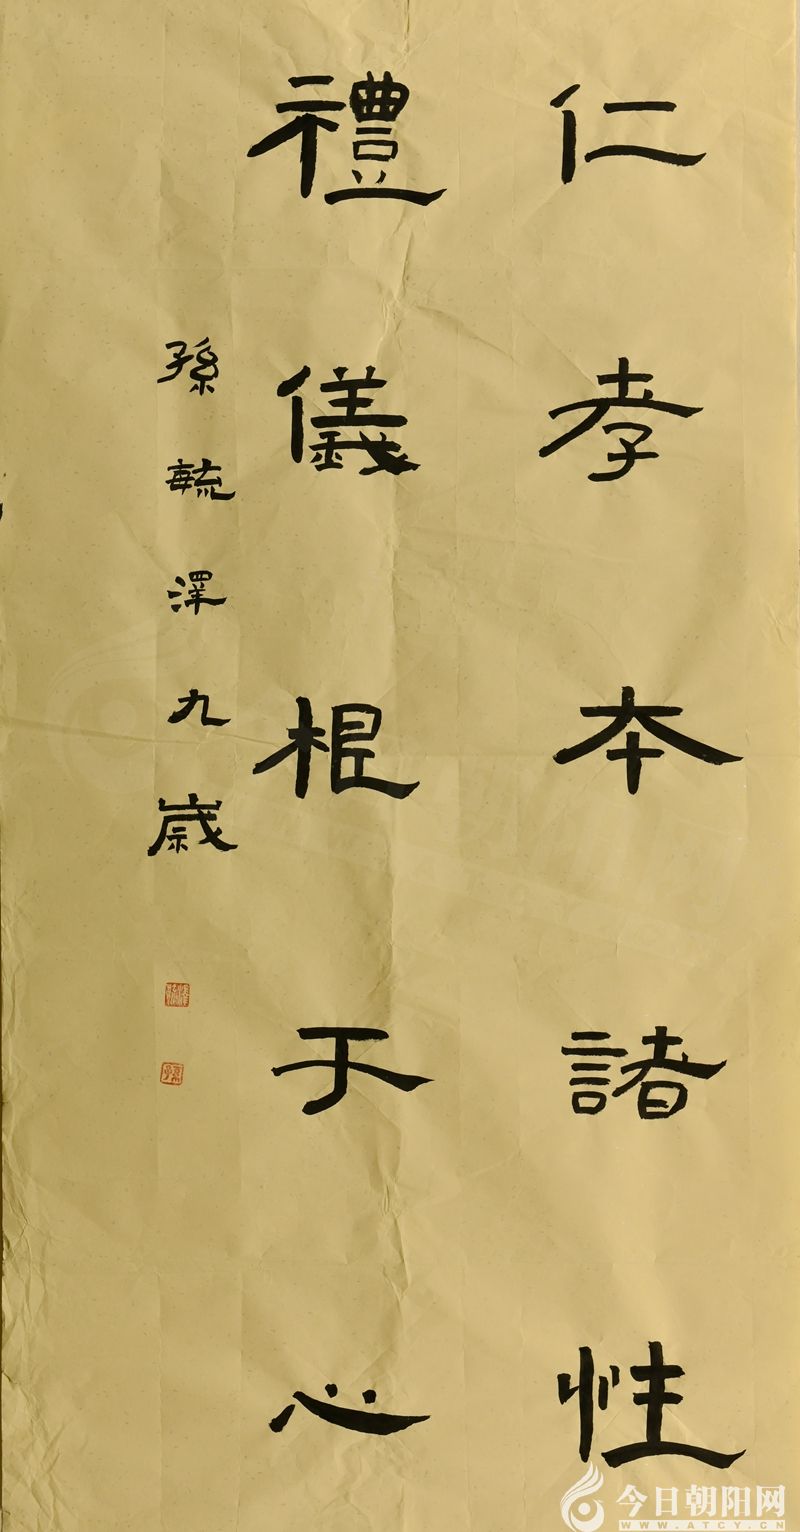 仁孝本諸性
禮儀根于心
孫毓澤九歲
今日朝阳网
WWW.ATCY.CN